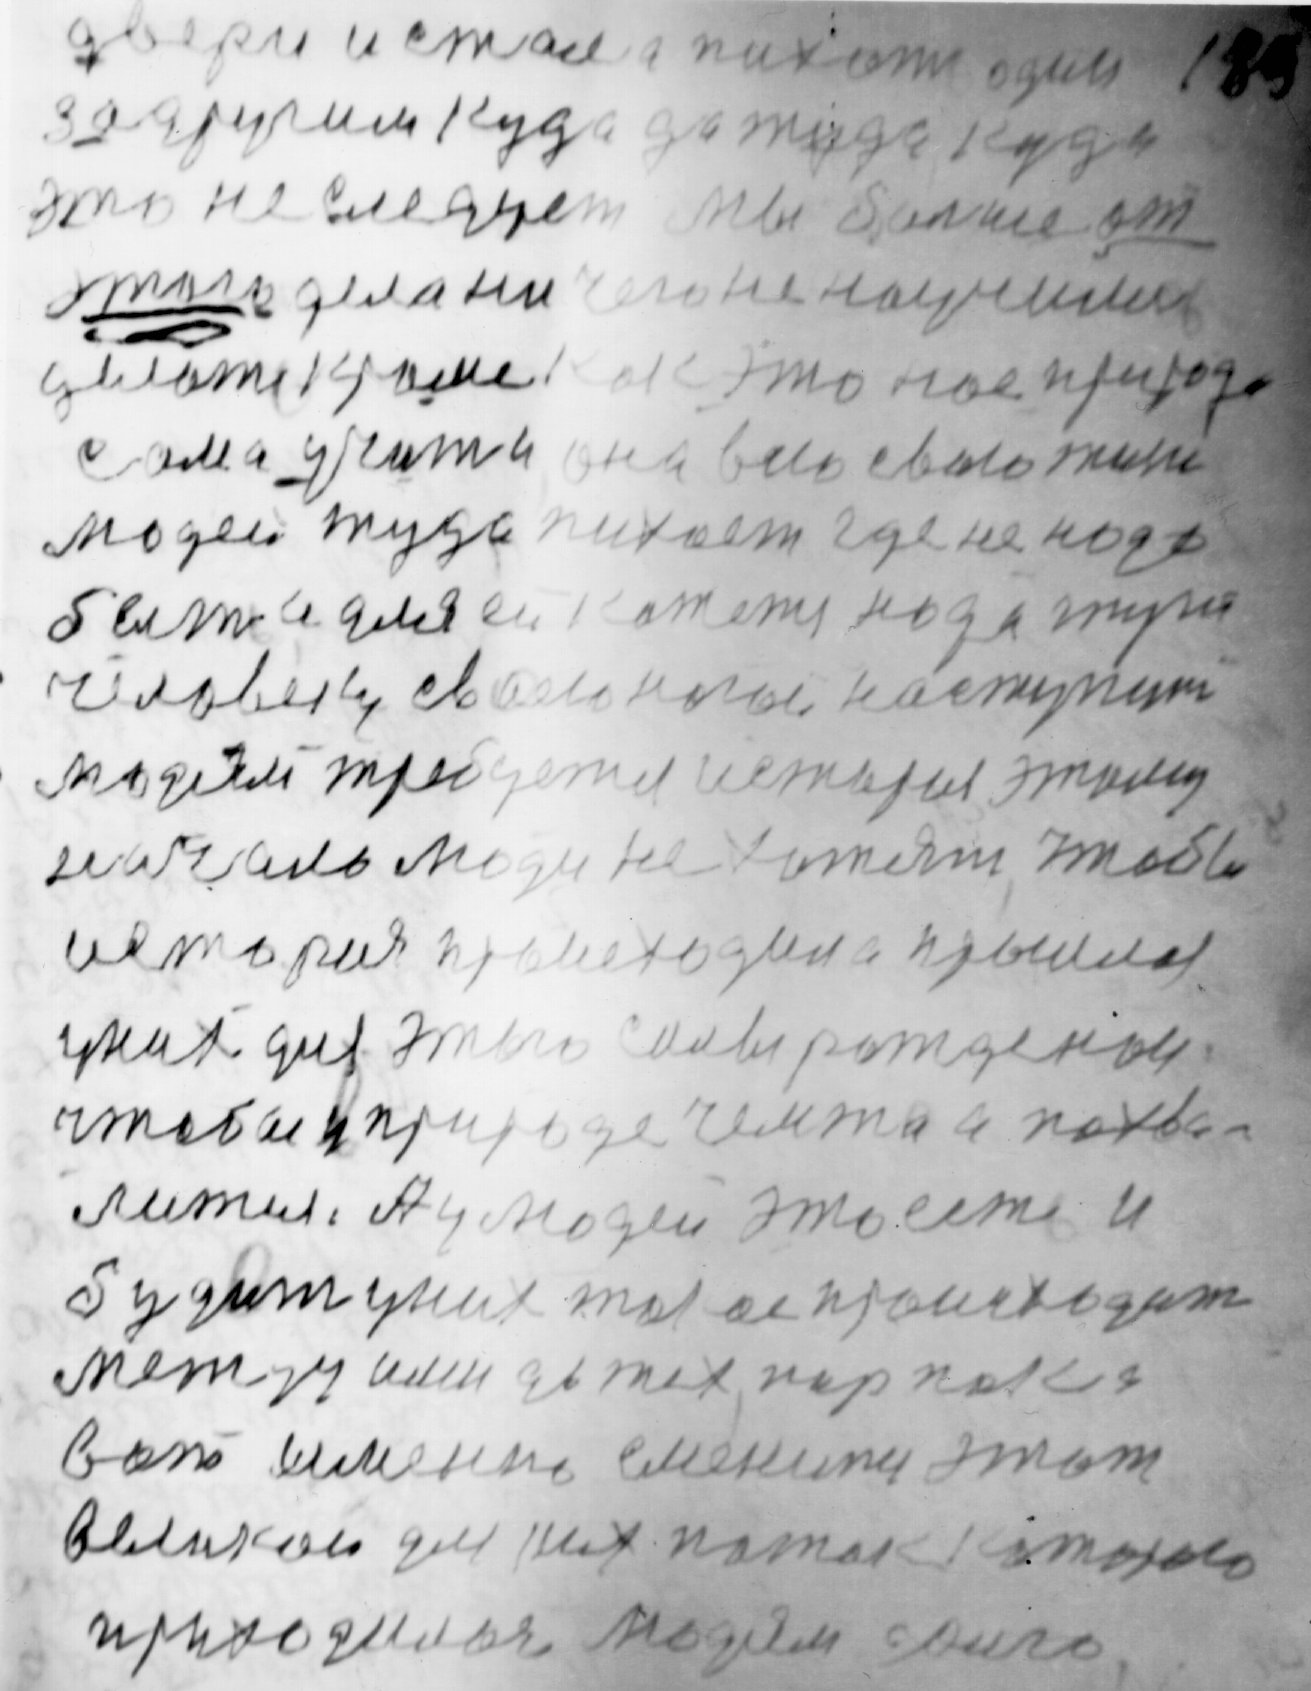 двери и стала пихати один 189
за другим куда да туда куда
это не следует мы больше от
этого дела ни чего не научились
делати кроме как это нас природа
сама учити она всю свою жизнь
людей туда пихает где не надо
быть и для ей кажетя надо тути
человеку своею ногой наступит
людям требуетя история этому
начало люди не хотят чтобы
история происходила прышлая
у них для этого силы рожденои
чтобы в природе чемта а похва-
литься. А у людей это есть и
будит у них такое происходит
между ими
вот именно сменити этот
великои для них поток которого
приходилося людям